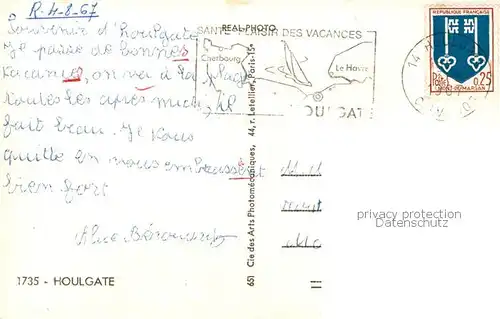 R. 4-8-67
Souvenir d'houlgate
Je passe de bonnes
vacances, on va à la
toutes les après midi, il
fait beau. Je vous
quitte en vous embrassent
bien fort
1735 - HOULGATE
REAL-PHOTO
651 Cie des Arts Photomécaniques, 44, r. Letellier, Paris-15e
SANTE PLAISIR DES VACANCES
Cherbourg
Le Havre
OULGATE
14 H
REPUBLIQUE FRANÇAISE
POSTES
0,25
MONT-DE-MARSAN
privacy protection
Datenschutz